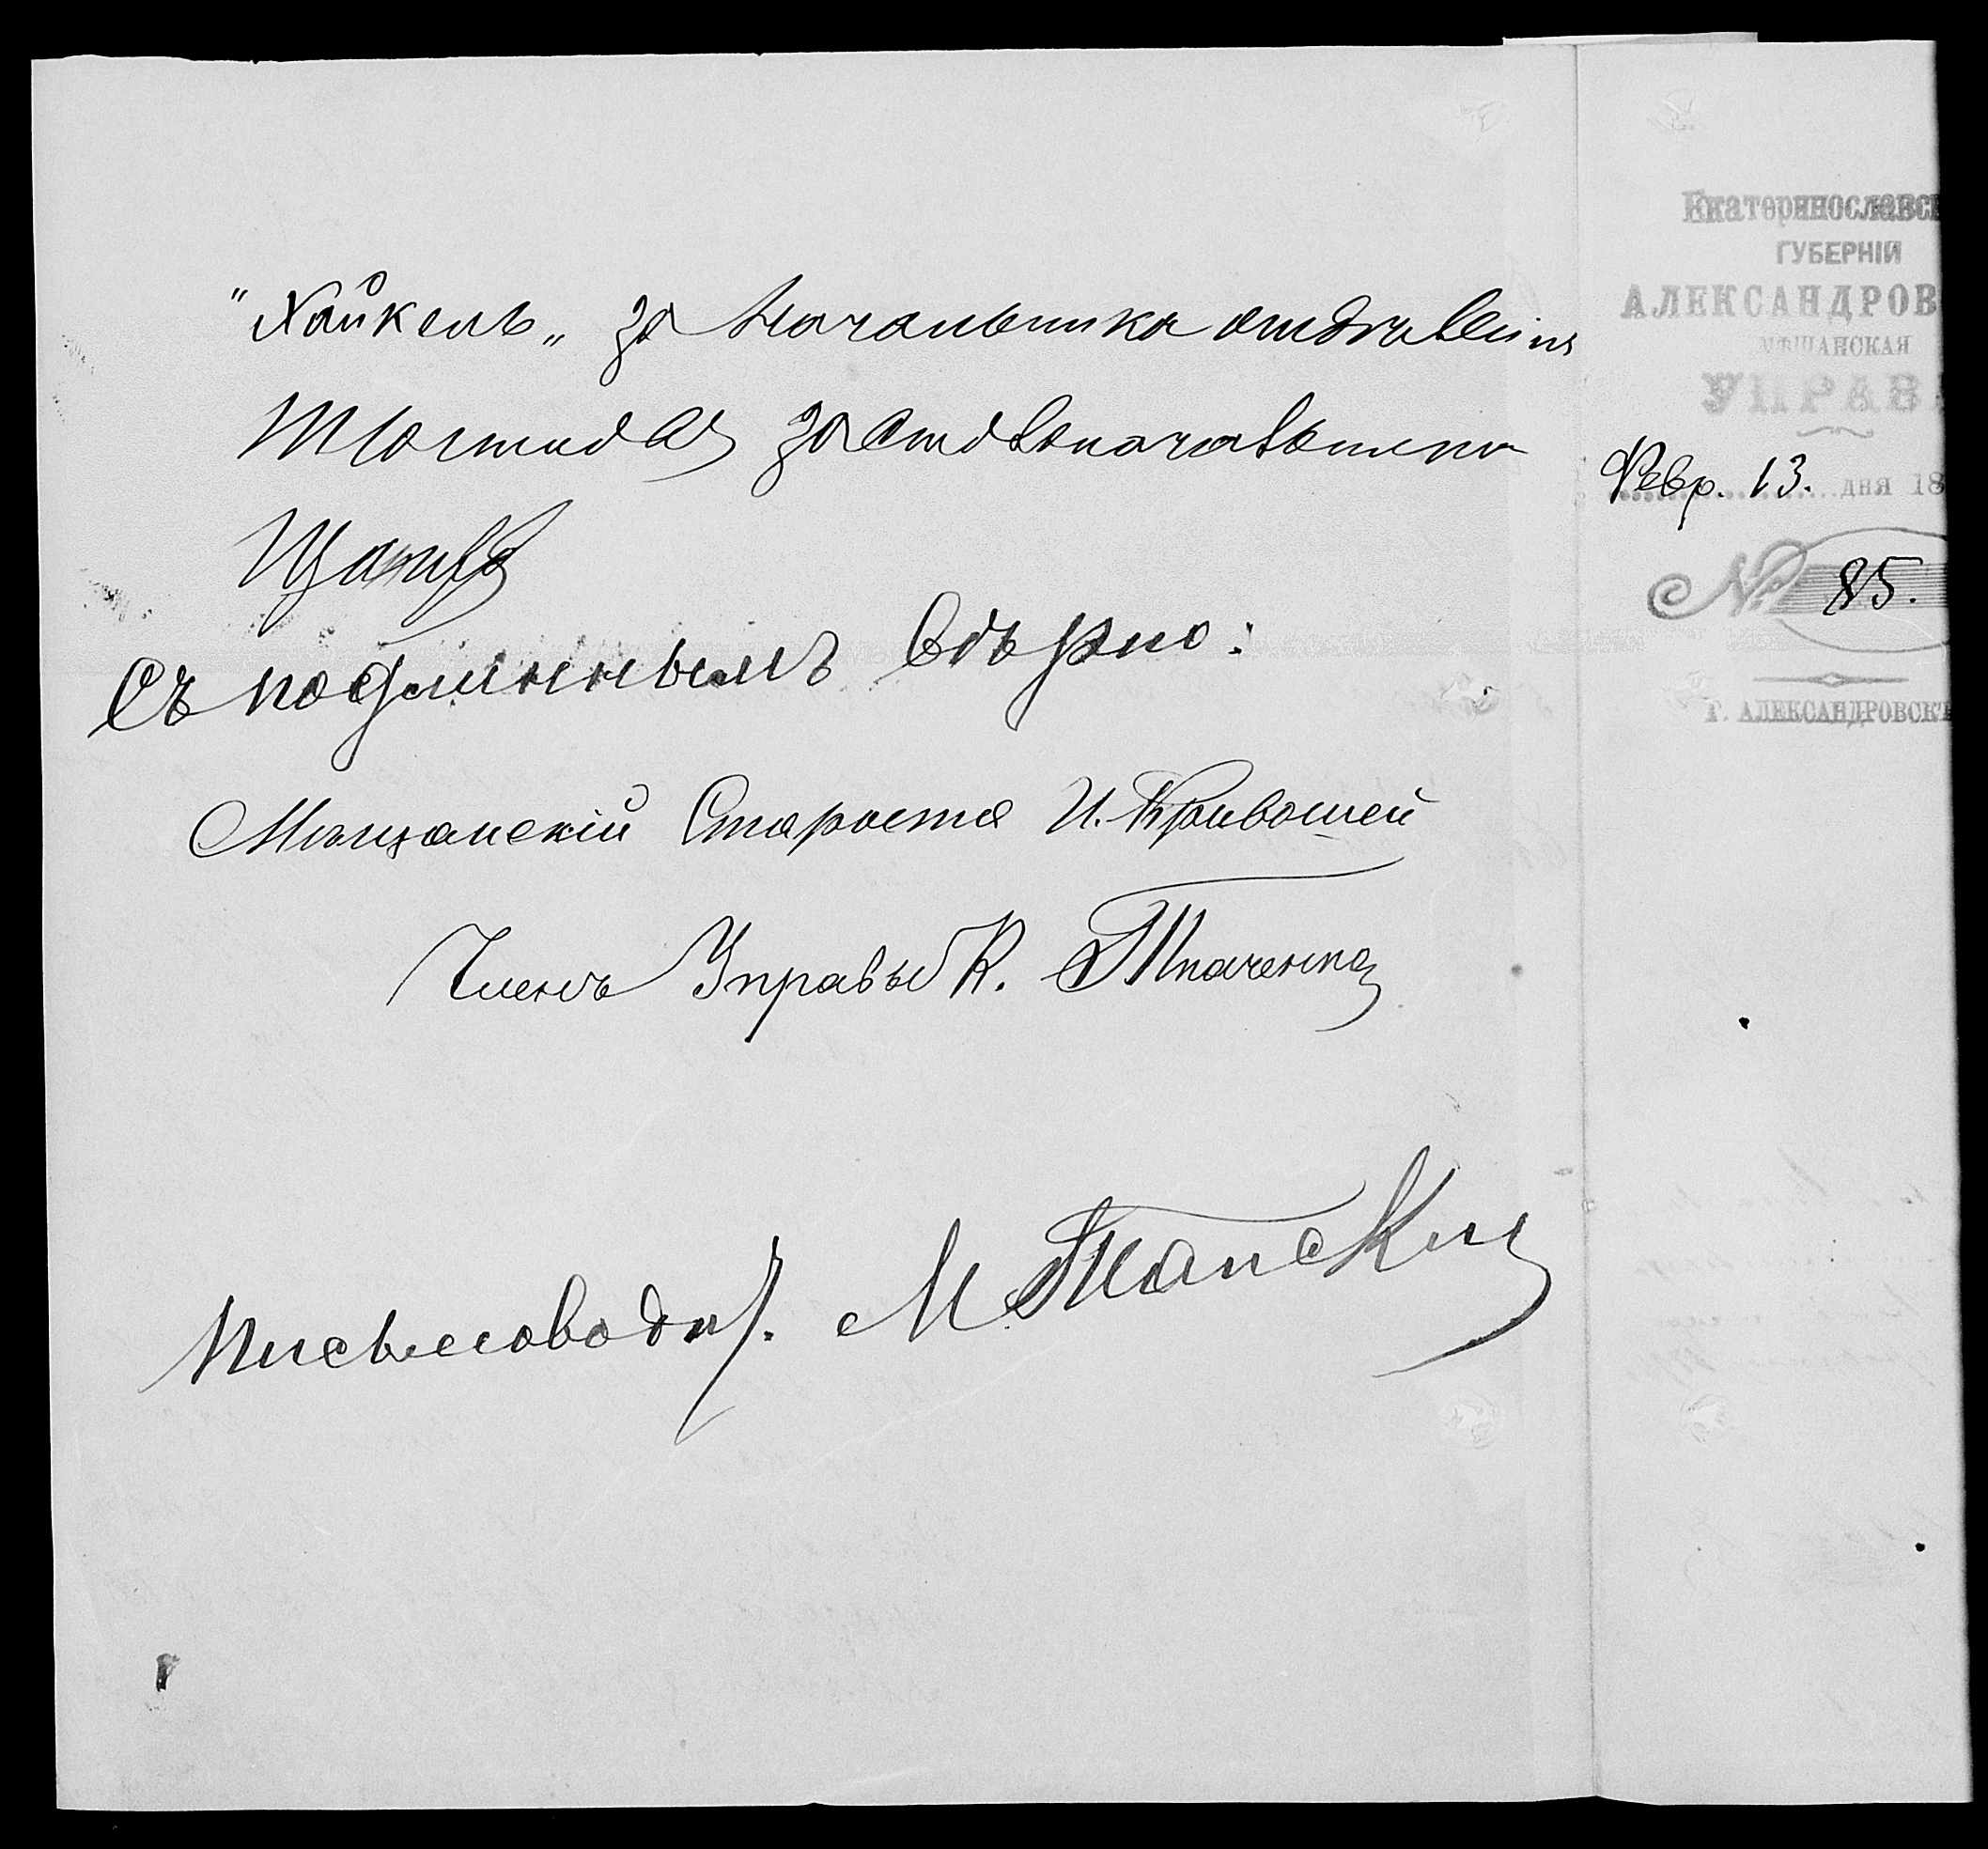 "Хайкель„ за Начальника отдѣленія
за Столоначальника
Съ подлиннымъ вѣрно:
Мѣщанскій Староста И. Кривошей
Членъ Управы К. Ткаченко
Письмоводит. М
Екатеринославск
ГУБЕРНІИ
АЛЕКСАНДРОВ
МѢЩАНСКАЯ
УПРАВА
Февр. 13. дня 18
№ 85.
Г. АЛЕКСАНДРОВСКЪ